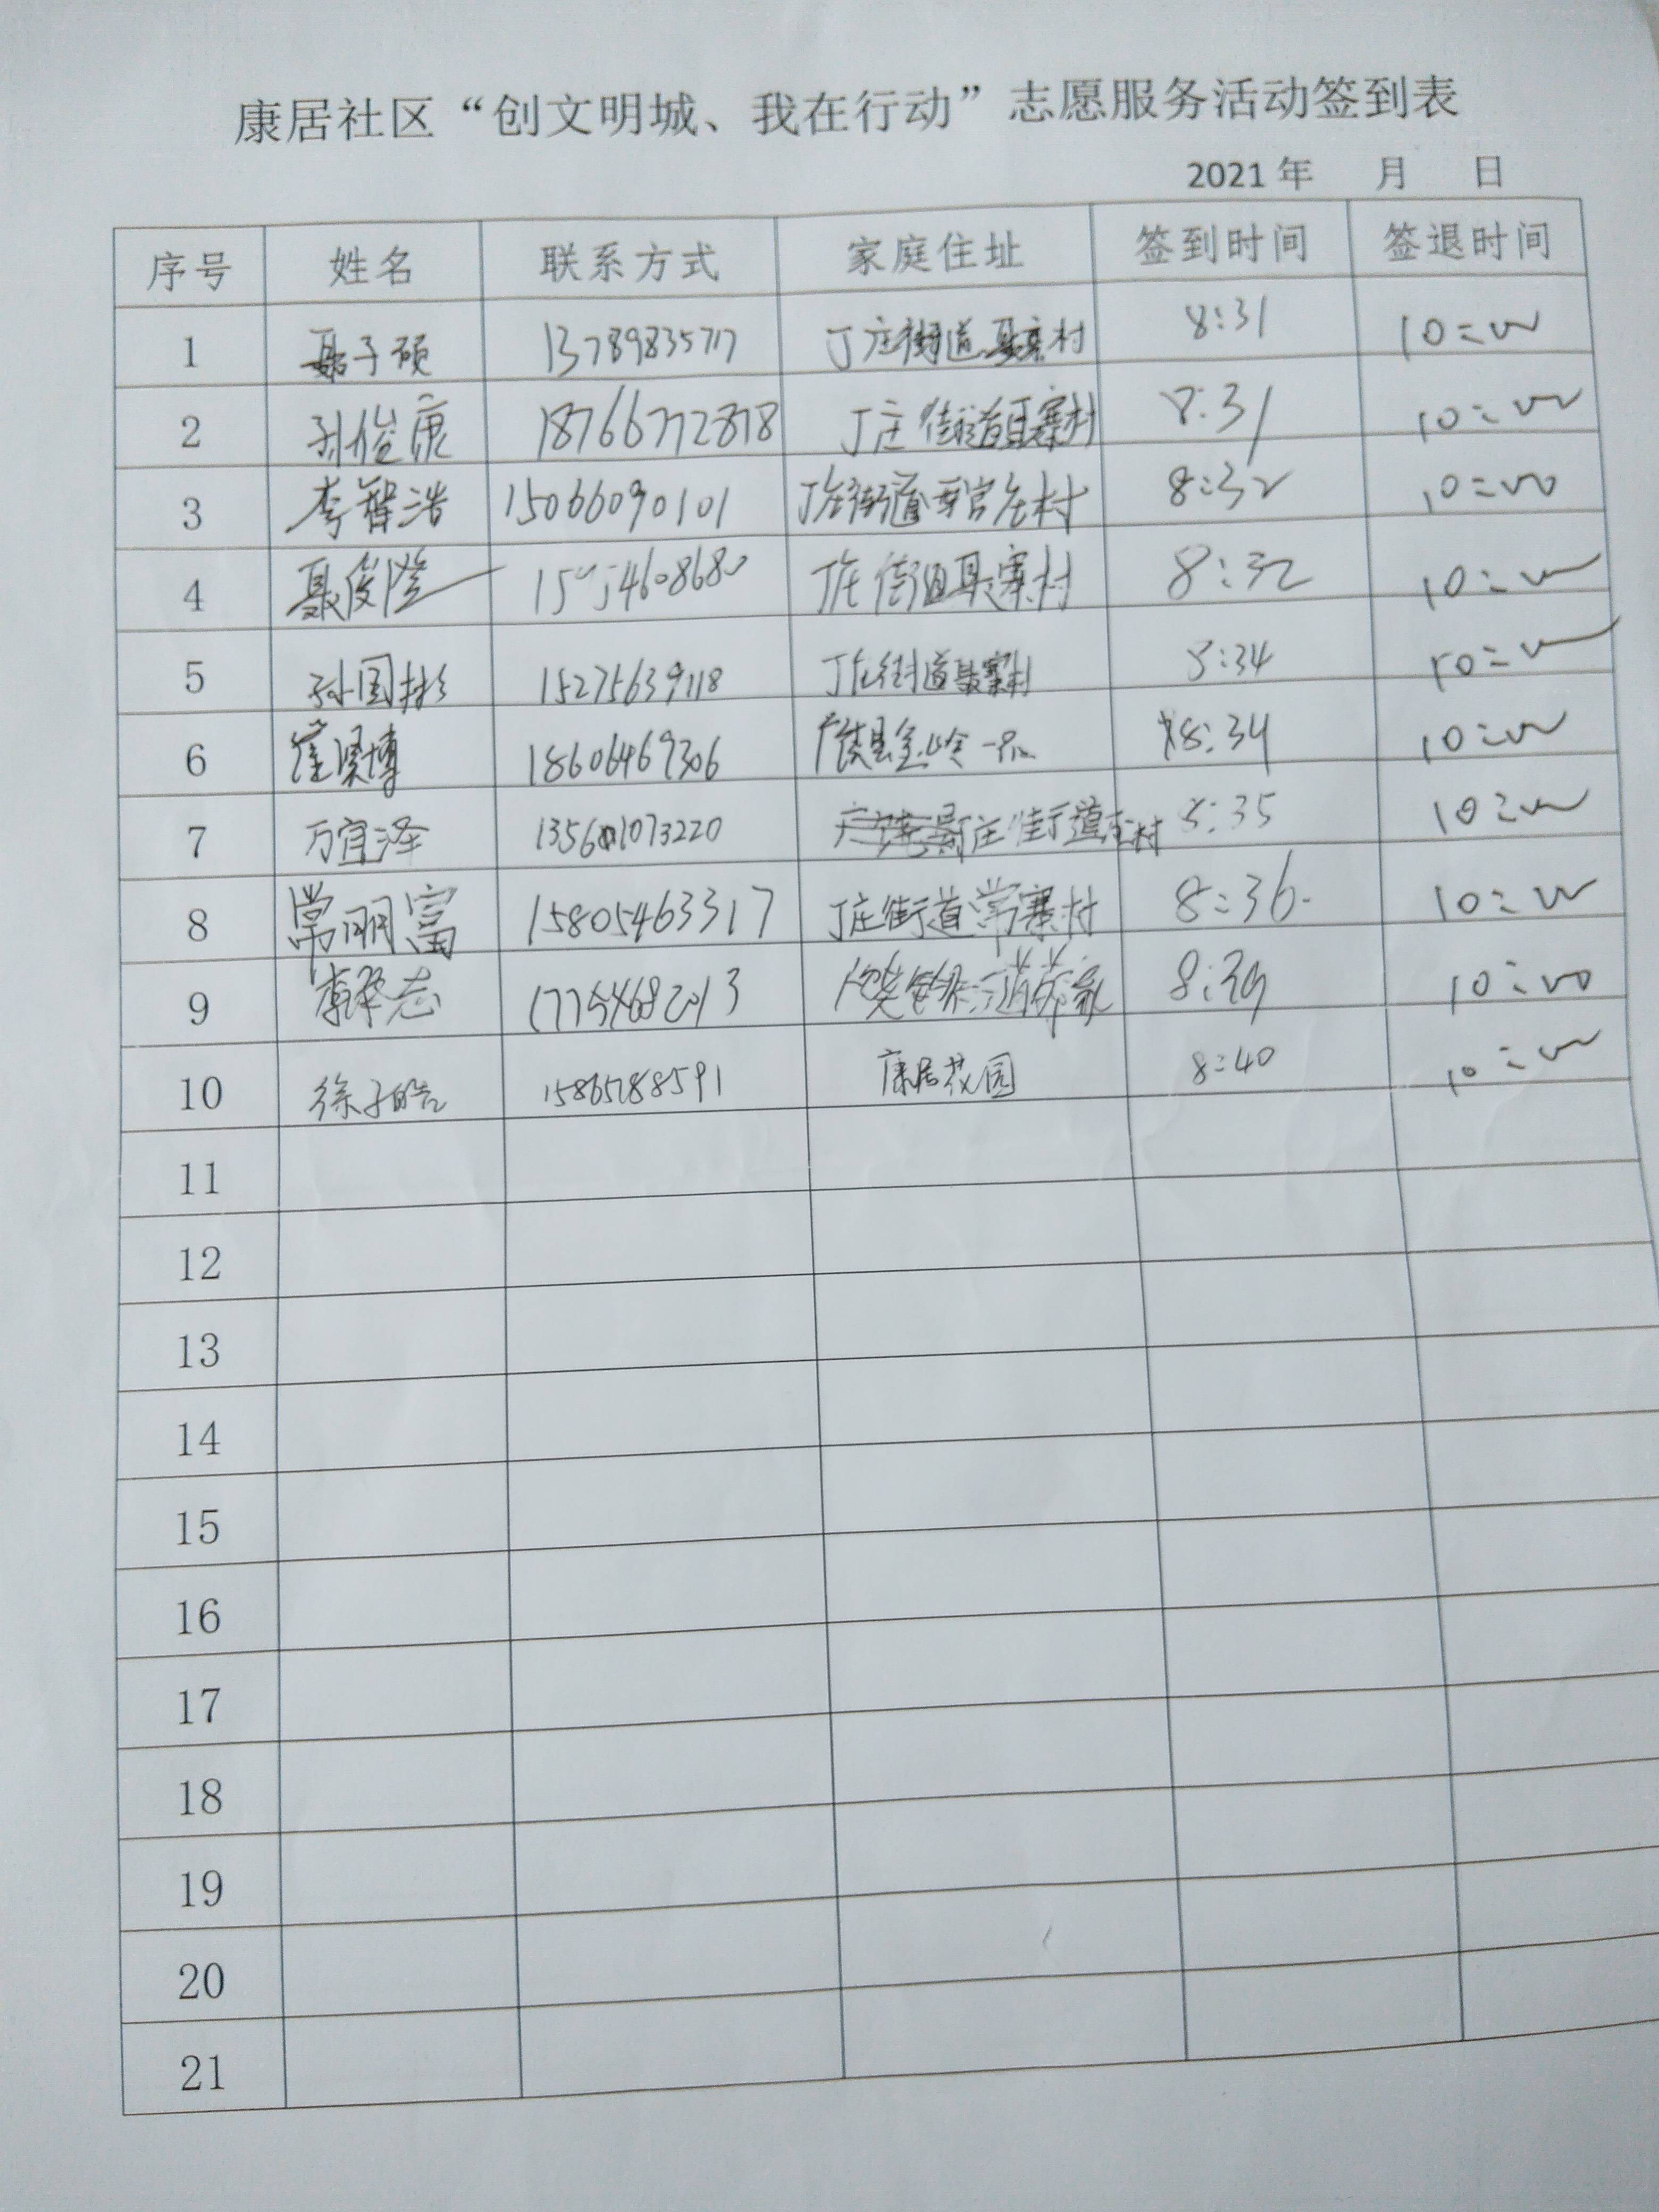 康居社区“创文明城、我在行动”志愿服务活动签到表
2021年 月 日
序号 姓名 联系方式 家庭住址 签到时间 签退时间
1 聂子硕 13789835717 丁庄街道聂寨村 8:31 10:00
2 孙俊康 18766772878 丁庄街道聂寨村 8:31 10:00
3 李智浩 15066090101 丁庄街道西官庄村 8:32 10:00
4 聂俊隆 丁庄街道聂寨村 8:32 10:00
5 孙国彬 15275639118 丁庄街道聂寨村 8:34 10:00
6 崔昊博 18606469306 广饶县金岭一品 8:34 10:00
7 万宜泽 丁庄街道 村 8:35 10:00
8 常明富 15805463317 丁庄街道常寨村 8:36 10:00
9 李泽志 17754682013 8:39 10:00
10 徐子皓 15865188591 康居花园 8:40 10:00
11
12
13
14
15
16
17
18
19
20
21